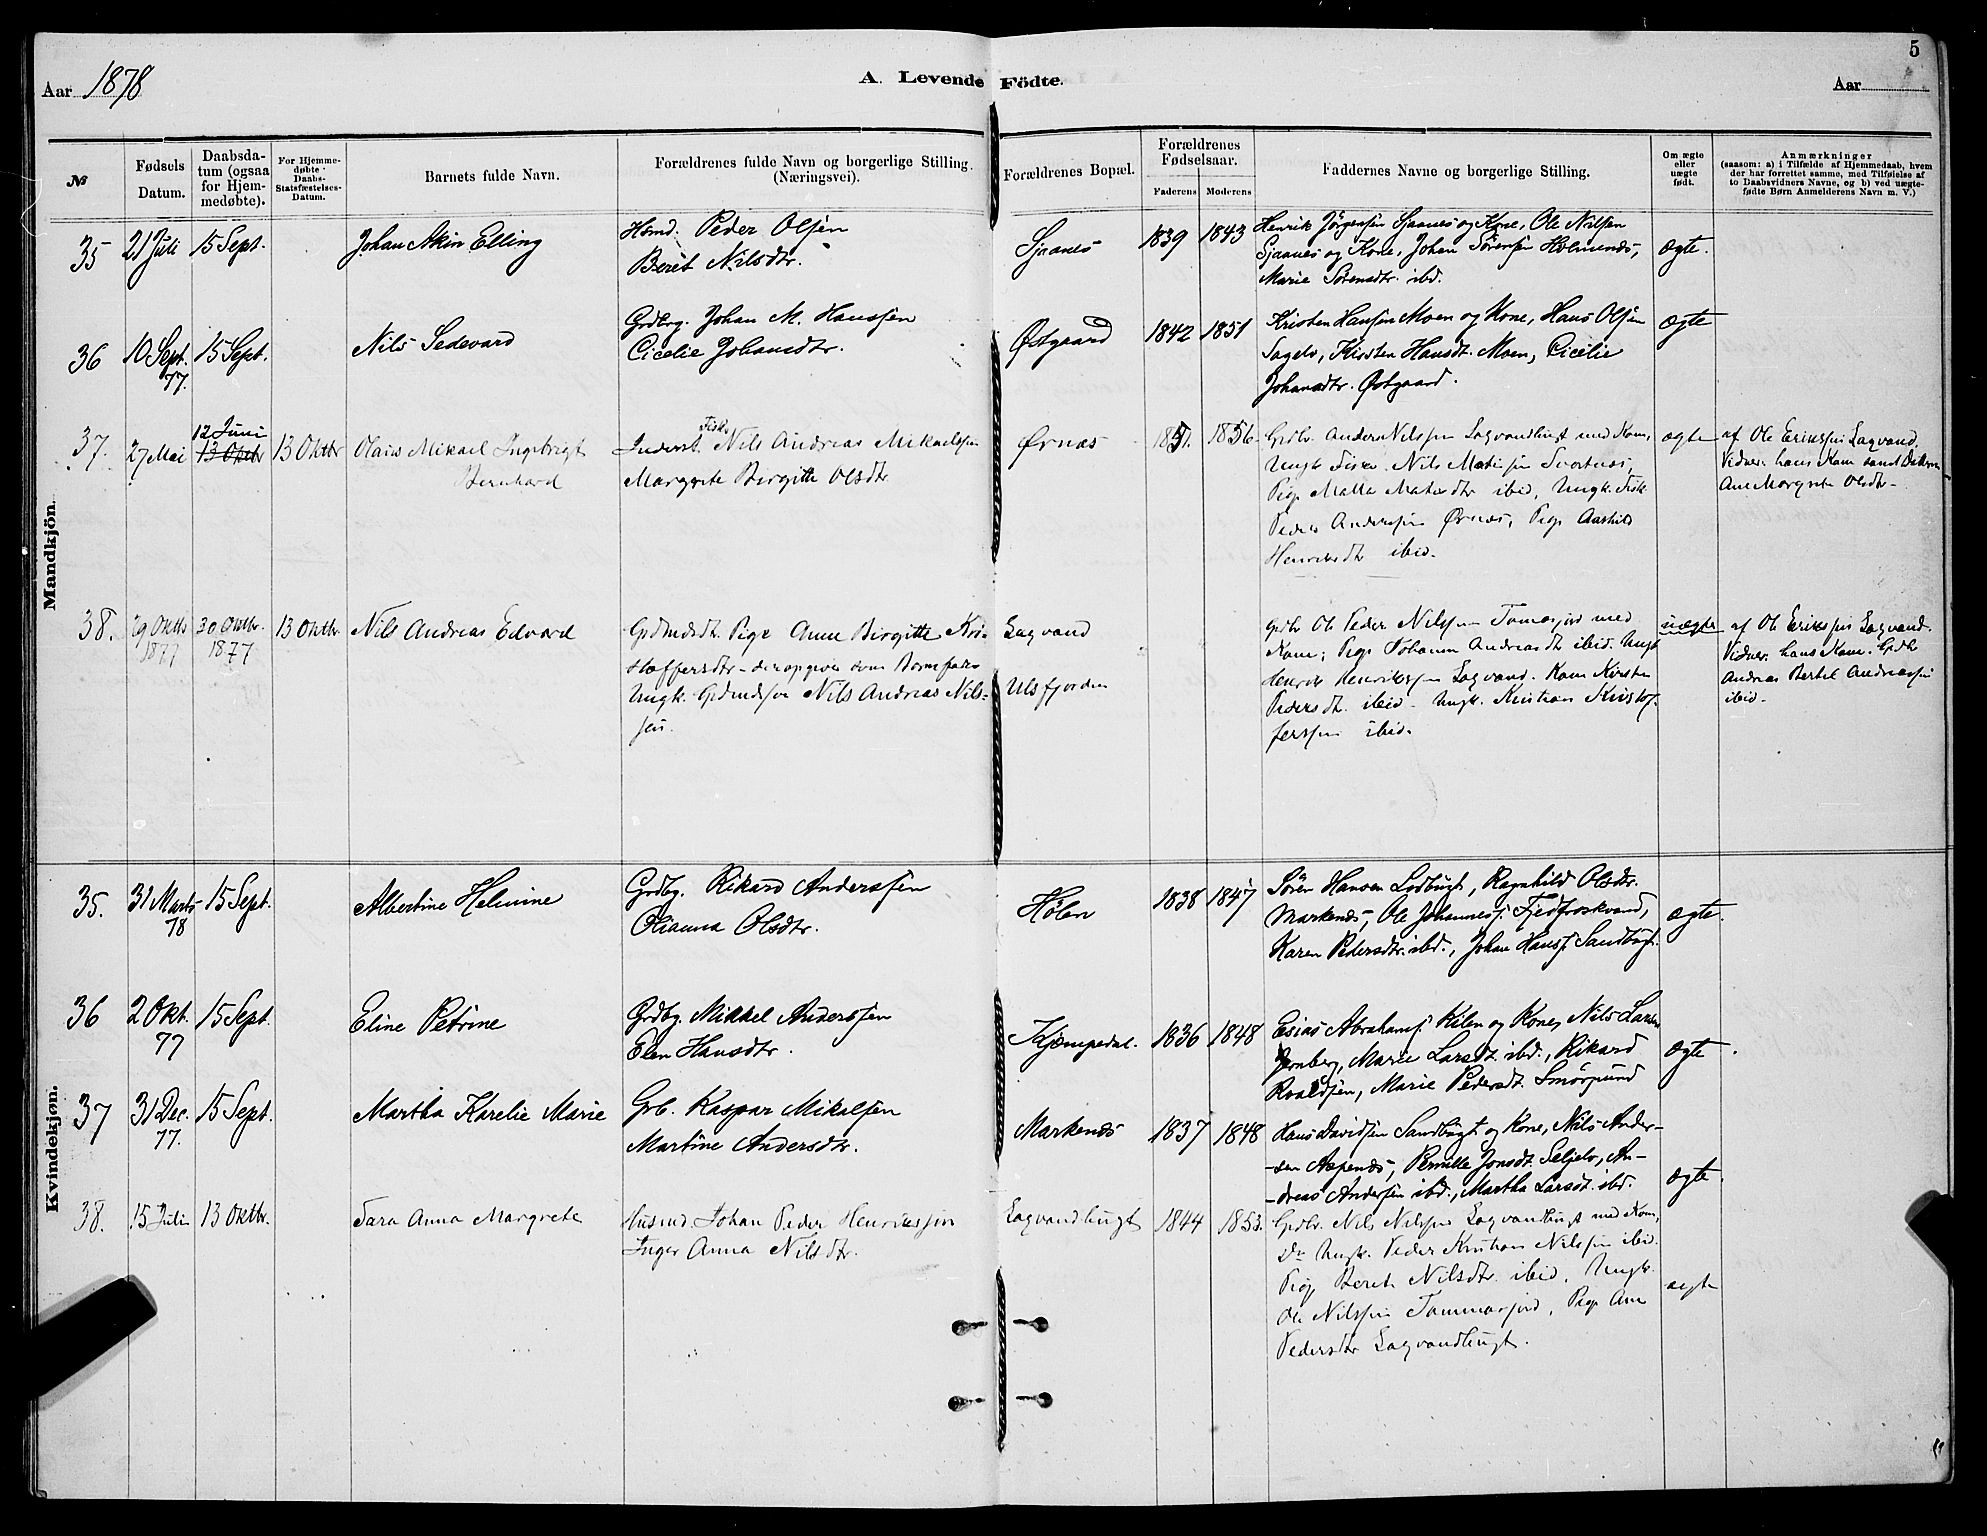 Aar 1878
A. Levende Födte.
5
Aar
№
Fødsels Datum.
Daabsda-
tum (ogsaa
for Hjem-
medøbte).
For Hjemme-
døbte
Daabs-
Statsfæstelses-
Datum.
Barnets fulde Navn.
Forældrenes fulde Navn og borgerlige Stilling.
(Næringsvei).
Forældrenes Bopæl.
Forældrenes
Fødselsaar.
Faderens Moderens
Faddernes Navne og borgerlige Stilling.
Om ægte
eller
uægte
født.
Anmærkninger
(saasom: a) i Tilfælde af Hjemmedaab, hvem
der har forrettet samme, med Tilføielse af
to Daabsvidners Navne, og b) ved uægte-
fødte Børn Anmelderens Navn m. V.)
Mandkjön.
35 21 Juli 15 Sept. Johan Elling
Peder Olsen
Berit Nilsdtr.
Sjaanes 1839 1843
Henrik Jörgensen Sjaanes og Kone, Ole Nilsen
Sjaanes og Kone, Johan Sörensen Holmenes,
Marie Sörensdtr. ibd.
ægte.
36 10 Sept. 77. 15 Sept. Nils Sedevard
Grdbrg. Johan M. Hanssen
Cicelie Johansdtr.
Østgaard 1842 1851
Kristen Hansen Moen og Kone, Hans Olsen
Sagelv, Kirsten Hansdt. Moen, Cicelie
Johansdtr. Østgaard.
ægte
37. 27 Mai 12 Juni 13 Oktbr 13 Oktbr Olais Mikael Ingebrigt
Bernhard
Inderst Fisk. Nils Andreas Mikaelsen
Margrete Birgitte Olsdtr
Ørnæs 1851. 1856.
Grdbr. Anders Nilssen Lagvandbugt med Kone,
Ungk. Fisker Nils Matissen
Pige Malla ibid, Ungk. Fisk
Peder Anderssen Ørnæs, Pige
Henriksdtr ibid.
ægte
af Ole Erikssen Lagvand.
Vidner: hans Kone samt Datteren
Ane Margrete Olsdtr.
38. 29 Oktb 1877 30 Oktbr. 1877 13 Oktbr. Nils Andreas Edvard
Grdmdsdtr. Pige Anne Birgitte Kri-
stoffersdtr. der opgiver som Barnefader
Ungk. Grdmdssøn Nils Andreas Nils-
sen.
Lagvand
Ulsfjorden
Grdbr Ole Peder Nilssen Tamasjord med
Kone; Pige Johanna Andreasdtr ibid. Ungk
Henrik Henrikssen Lagvand. Kone Kirsten
Pedersdtr. ibid. Ungk. Kristian Kristof-
ferssen ibid.
uægte
af Ole Erikssen Lagvand.
Vidner: hans Kone. Grdbr
Andreas Bertel Andreassen
ibid.
Kvindekjøn.
35. 31 Marts 78 15 Sept. Albertine Helmine
Grdbg. Rikard Anderssen
Olianna Olsdtr.
Hølen 1838 1847
Sören Hansen Lodbugt, Ragnhild Olsdtr.
Markenæs, Ole Johannes. Fjedfroskvand,
Karen Pedersdtr. ibd., Johan Hans. Sandbugt.
ægte.
36 2 Okt. 77 15 Sept. Eline Petrine
Grdbg. Mikkel Anderssen
Elen Hansdtr.
Kjempedal. 1836 1848
Esias Abrahams. Kilen og Kone, Nils Larsen
Jernberg, Marie Larsdt. ibd., Rikard
Roaldsen, Marie Pedersdt. Smörsund
ægte.
37 31 Dec. 77. 15 Sept. Martha Karelie Marie
Grb. Kaspar Mikalsen
Martine Andersdtr.
Markenæs 1837 1848
Hans Davidsen Sandbugt og Kone, Nils Ander-
-sen Aspenæs, Pernille Jonsdt. Seljelv, An-
-dreas Andersen ibd., Martha Larsdt. ibd.
ægte.
38. 15 Juli 13 Oktbr. Sara Anna Margrete
Husmd. Johan Peder Henrikssen
Inger Anna Nilsdtr.
Lagvandbugt 1844 1853.
Grdbr. Nils Nilssen Lagvandbugt med Kone,
Ungk. Peder Kristian Nilssen ibid.
Pige Berit Nilsdtr. ibid. Ungk.
Ole Nilssen Tammasjord, Pige Ane
Pedersdtr Lagvandbugt.
ægte